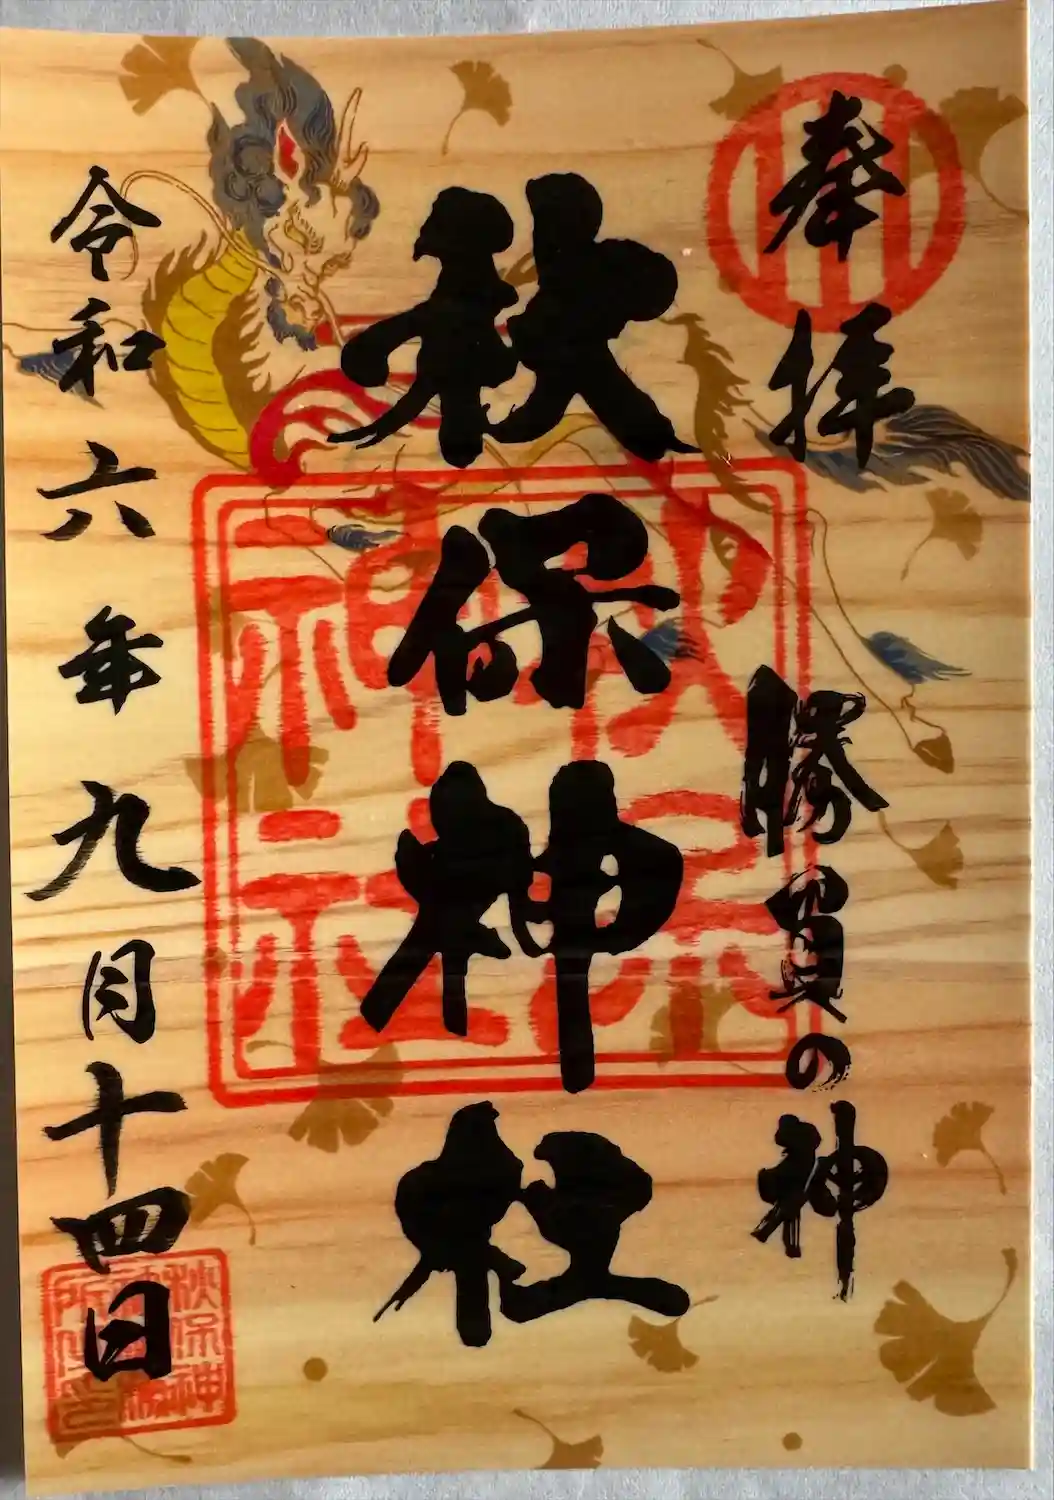 奉拝
勝負の神
秋保神社
令和六年九月十四日
秋保神社
秋保神